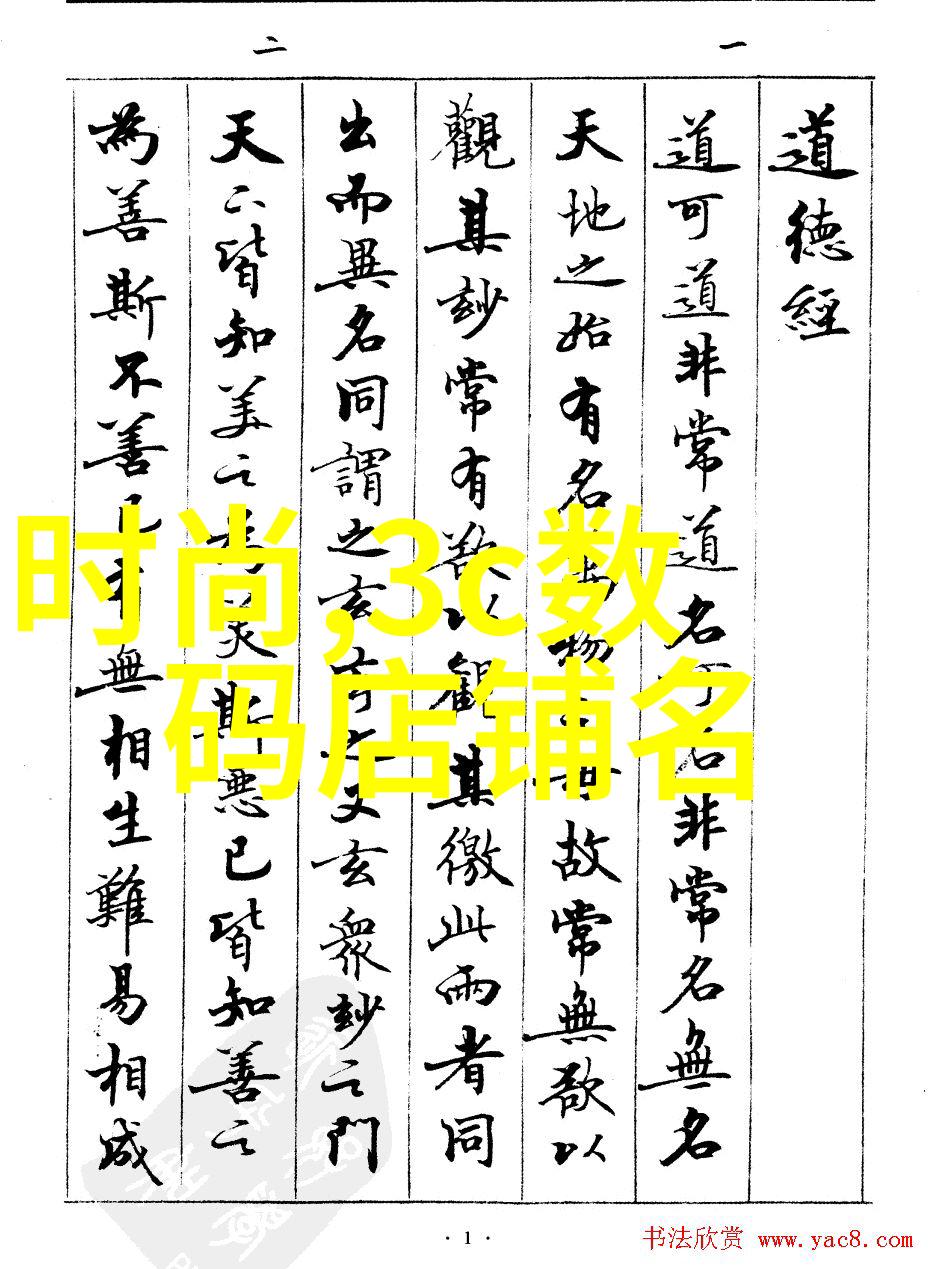 一
二
道德經
道可道非常道名可名非常名無名
天地之始有名萬物之母故常無欲以
觀其玅常有欲以觀其徼此兩者同
出而異名同謂之玄玄之又玄衆玅之門
天下皆知美之為美斯惡已皆知善之
為善斯不善已有無相生難易相成
时尚,3c数
码店铺名
· 1 ·
书法欣赏 www.yac8.com